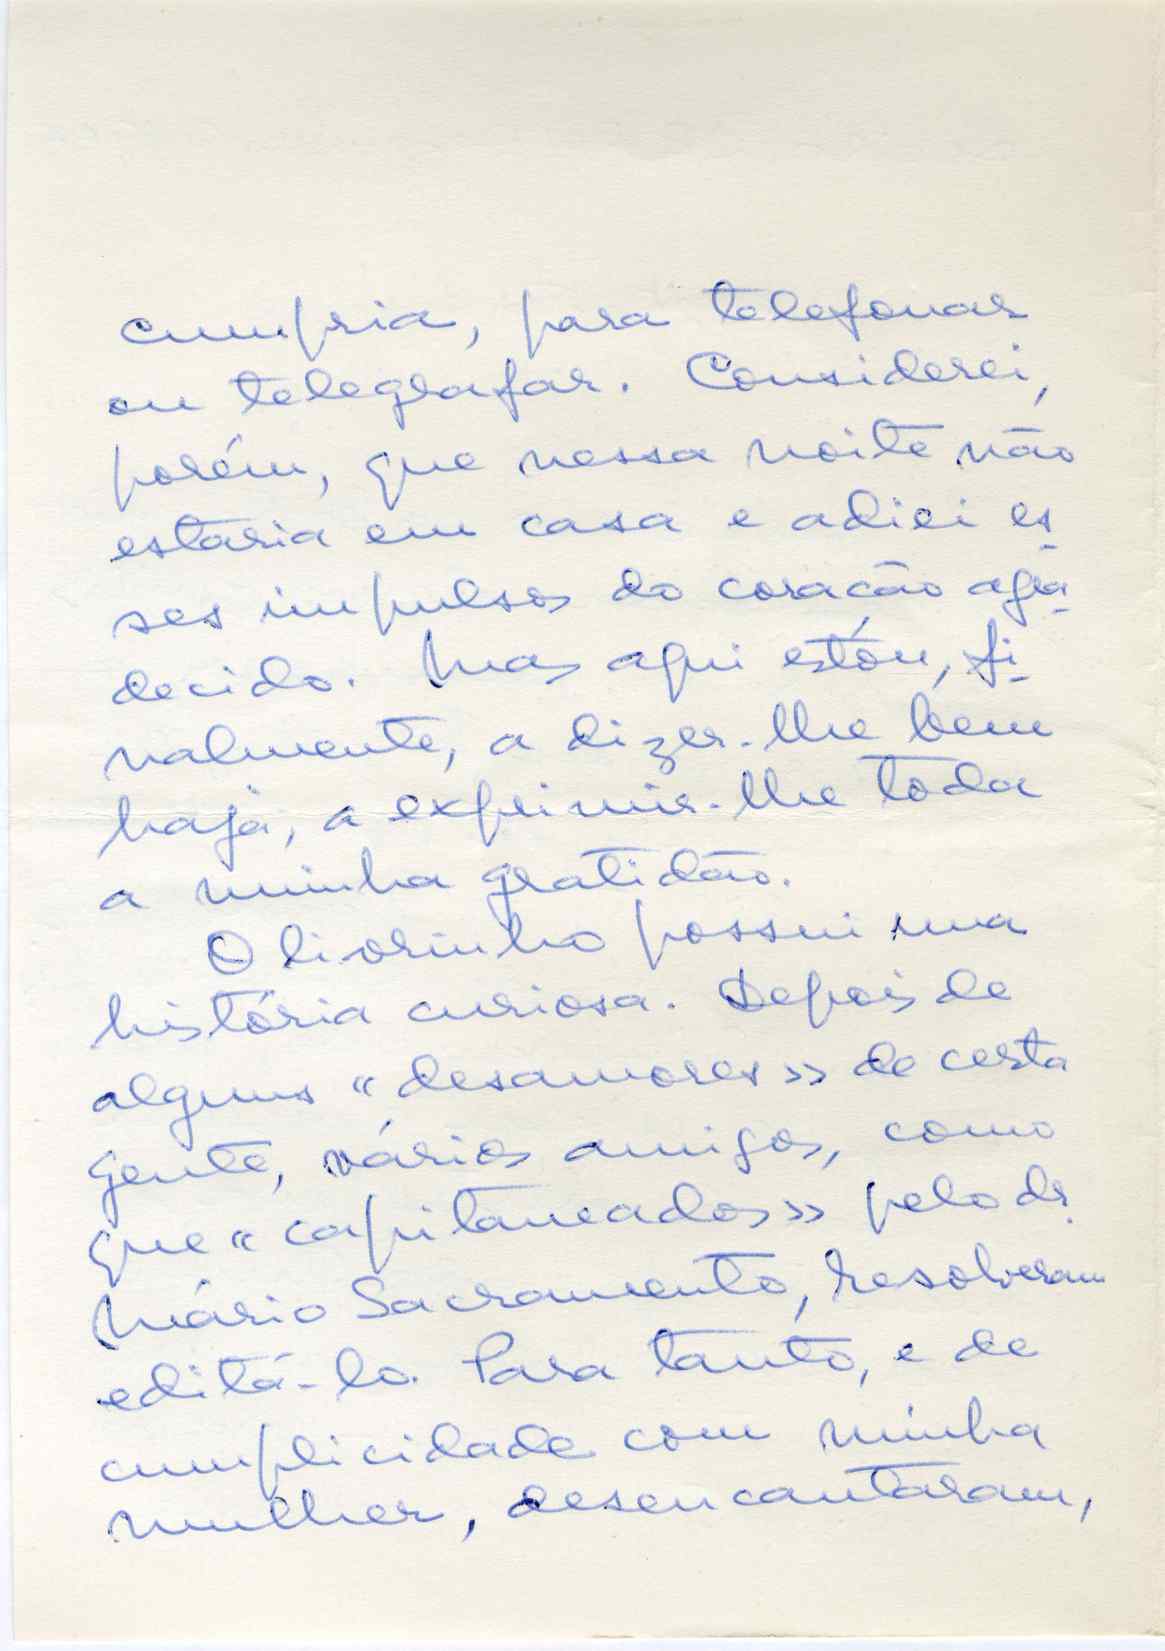 cumpria, para telefonar
ou telegrafar. Considerei,
porém, que nessa noite não
estaria em casa e adiei es-
ses impulsos do coração agra-
decido. Mas aqui estóu, fi-
nalmente, a dizer-lhe bem
haja, a exprimir-lhe toda
a minha gratidão.
O livrinho possui uma
história curiosa. Depois de
alguns «desamores» de certa
gente, vários amigos, como
que «capitaneados» pelo dr.
Mário Sacramento, resolveram
editá-lo. Para tanto, e de
cumplicidade com minha
mulher, desencantaram,